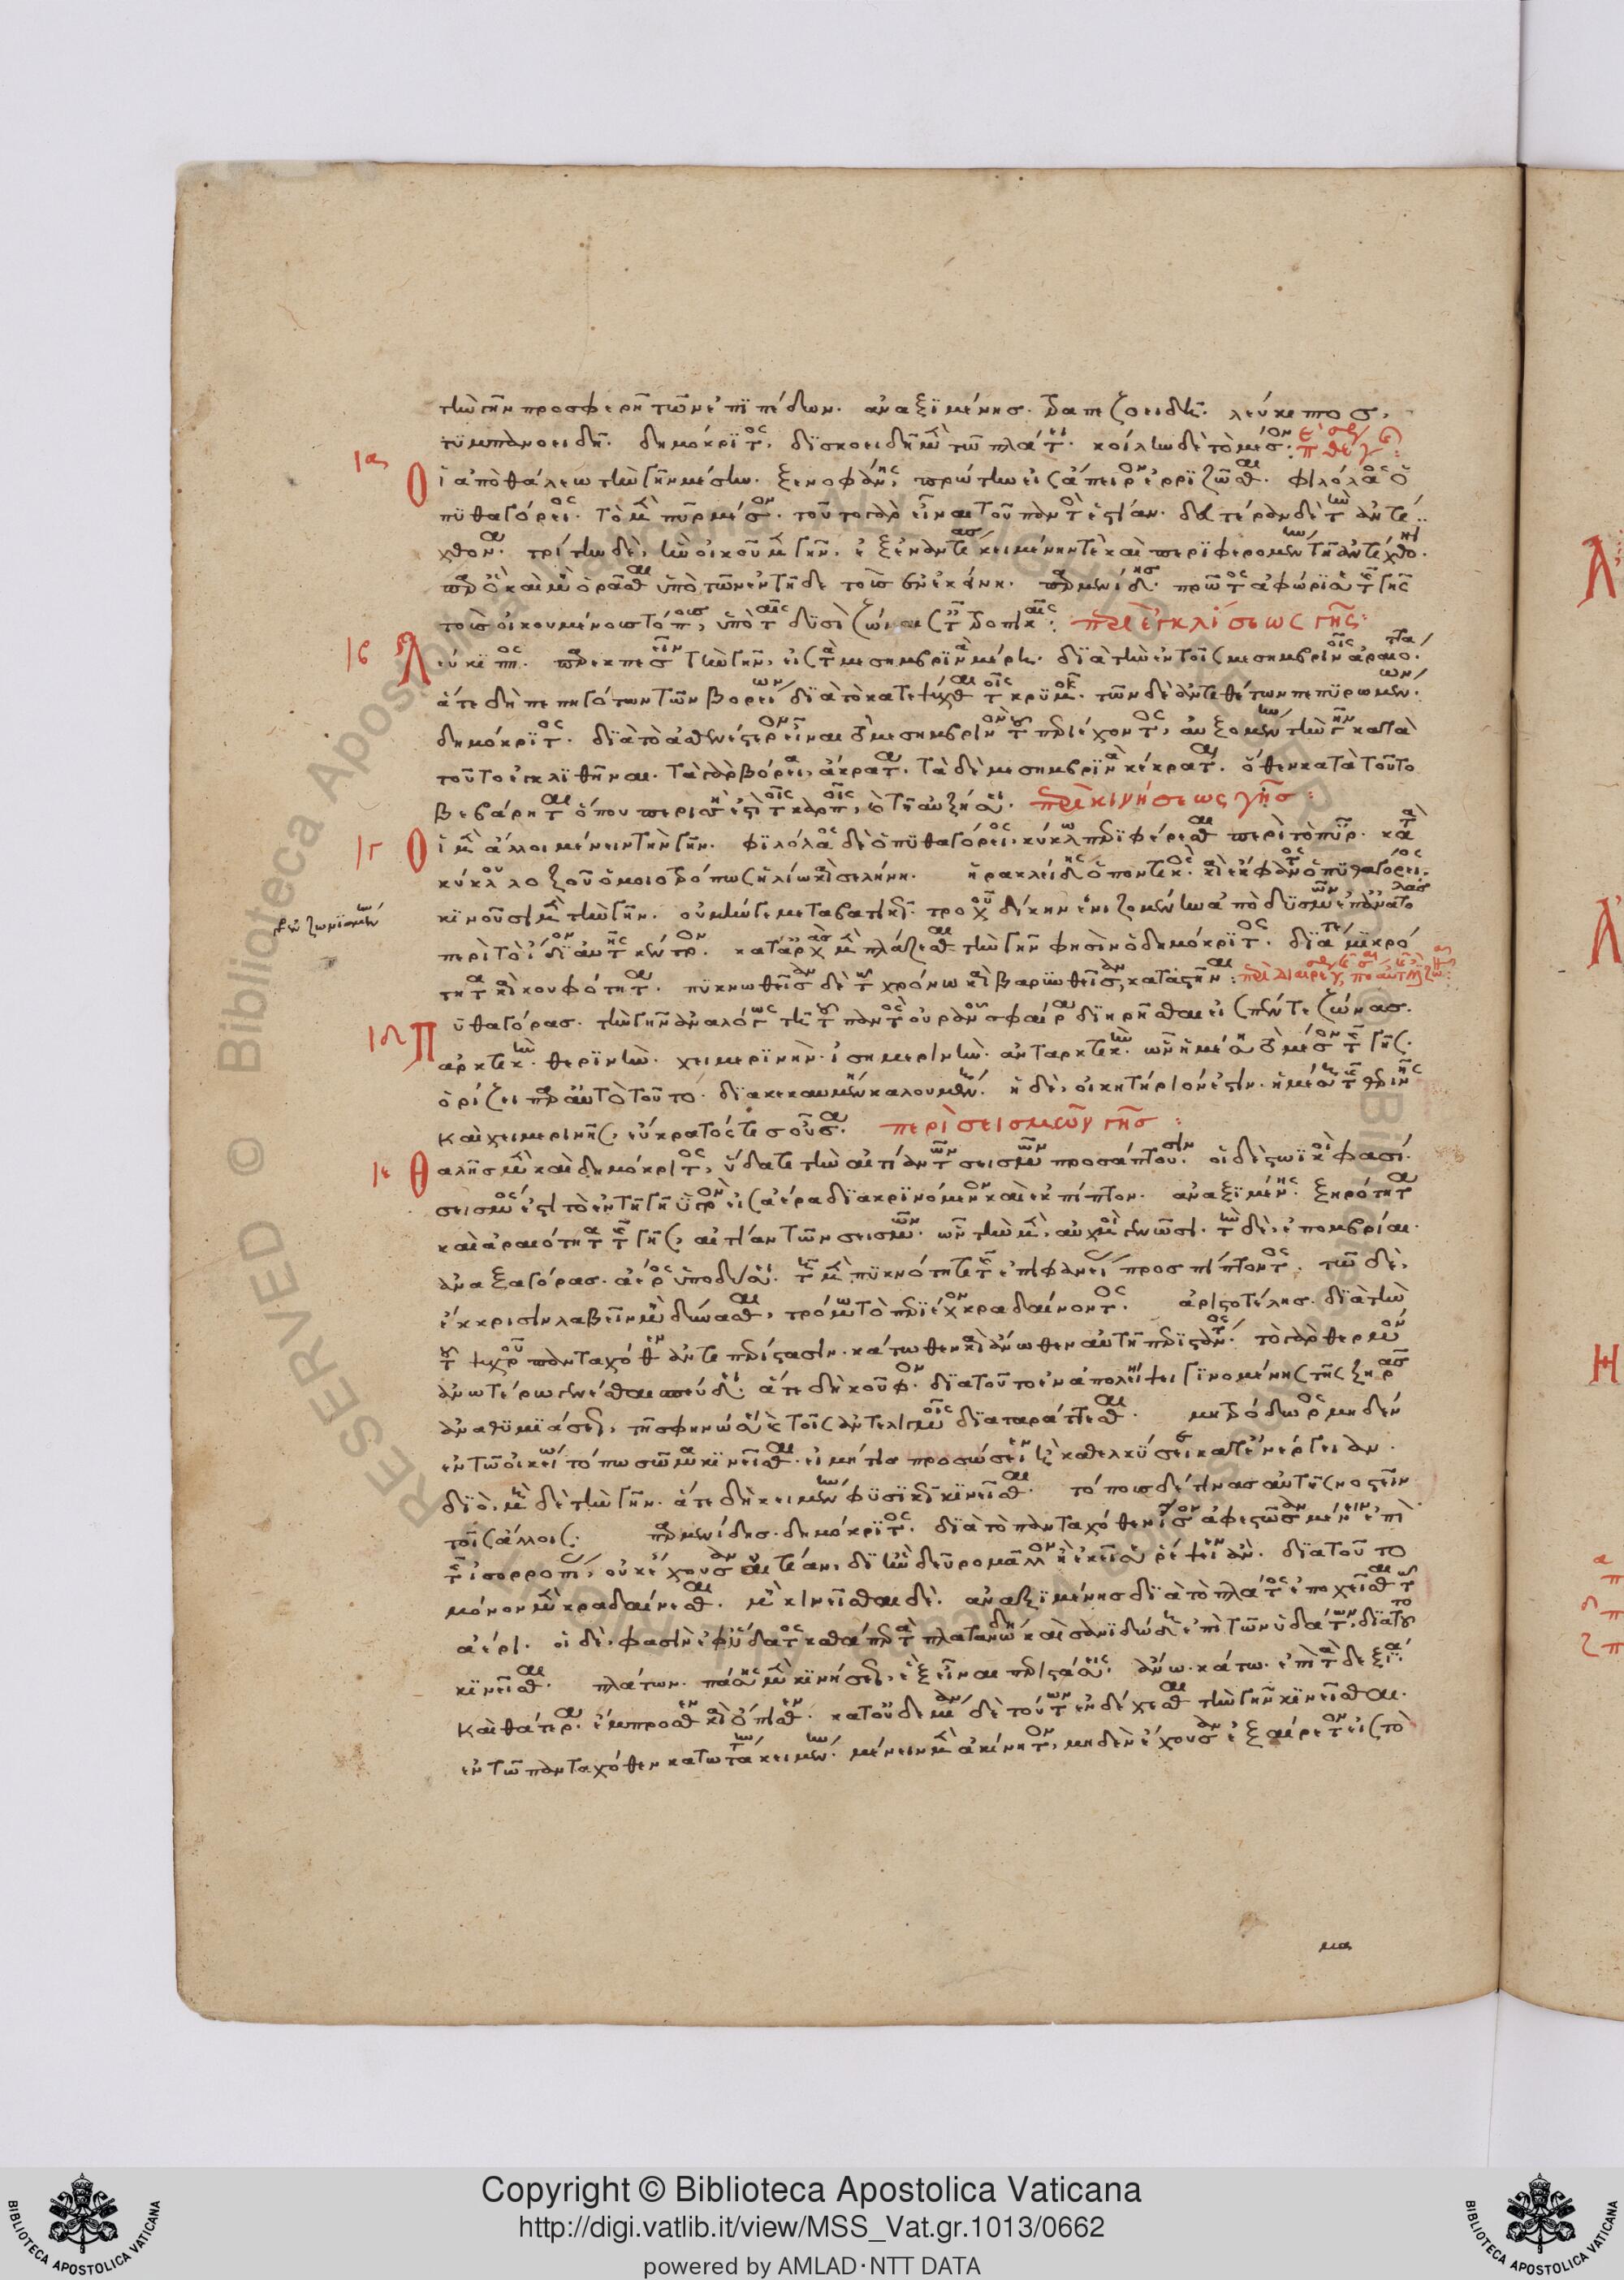 τὴν γῆν προσφερῆ τῶν ἐπιπέδων. ἀναξιμένησ. τραπεζοειδῆ. λεύκιπποσ,
τυμπανοειδῆ. δημόκριτος, δισκοειδῆ μὲν τῶ πλάτει. κοίλην δὲ τὸ μέσον:
ια Οἱ ἀπὸ θάλεω τὴν γῆν μέσην. ξενοφάνης, πρώτην εἰς ἄπειρον ἐρριζῶσθαι. φιλόλαος ὁ
πυθαγόρειος. τὸ μὲν πῦρ μέσον. τοῦτο γὰρ εἶναι τοῦ παντὸς ἑστίαν. δευτέραν δὲ τὴν ἀντί
χθονα. τρίτην δὲ, ἣν οἰκοῦμεν γῆν. ἐξ ἐναντίας κειμένην τε καὶ περιφερομένην τῆ ἀντίχθονι.
παρ' ὃ καὶ μὴ ὁρᾶσθαι ὑπὸ τῶν ἐν τῆδε τοὺσ ἐν ἐκείνη. παρμενίδησ. πρῶτος ἀφώρισε τῆς γῆς
τοὺσ οἰκουμένουσ τόπουσ, ὑπὸ ταῖς δυσὶ ζώναις ταῖς τροπικαῖς: περὶ ἐγκλίσεως γῆς:
ιβ Λεύκιππος. παρεκπεσεῖν τὴν γῆν, εἰς τὰ μεσημβρινὰ μέρη. διὰ τὴν ἐν τοῖς μεσημβρινοῖς ἀραιότητα.
ἅτε δὴ πεπηγότων τῶν βορείων διὰ τὸ κατεψῦχθαι τοῖς κρυμοῖς. τῶν δὲ ἀντιθέτων πεπυρωμένων.
δημόκριτος. διὰ τὸ ἀσθενέστερον εἶναι τὸ μεσημβρινὸν τοῦ περιέχοντος, αὐξομένην τὴν γῆν κατὰ
τοῦτο ἐγκλιθῆναι. τὰ γὰρ βόρεια, ἄκρατα. τὰ δὲ μεσημβρινὰ κέκραται. ὅθεν κατὰ τοῦτο
βεβάρηται ὅπου περισσή ἐστι τοῖς καρποῖς, καὶ τῆ αὐξήσει. περὶ κινήσεως γῆσ:
ιγ Οἱ μὲν ἄλλοι μένειν τὴν γῆν. φιλόλαος δὲ ὁ πυθαγόρειος, κύκλω περιφέρεσθαι περὶ τὸ πῦρ. κατὰ
κύκλου λοξοῦ ὁμοιοτρόπως ἡλίω καὶ σελήνη. ἡρακλείδης ὁ ποντικὸς. καὶ ἔκφαντος ὁ πυθαγόρειος.
κινοῦσι μὲν τὴν γῆν. οὐ μήν γε μεταβατικῶς. τροχοῦ δίκην ἐνιζομένην ἀπὸ δυσμῶν ἐπ' ἀνατολὰσ
ἐνζωνισμένην
περὶ τὸ ἴδιον αὐτῆς κέντρον. κατ' ἀρχὰσ μὲν πλάζεσθαι τὴν γῆν φησὶν ὁ δημόκριτος. διά τε μικρό
τητα καὶ κουφότητα. πυκνωθεῖσαν δὲ τῶ χρόνω καὶ βαρυνθεῖσαν, καταστῆναι:
ιδ Πυθαγόρασ. τὴν γῆν ἀναλόγως τῆ τοῦ παντὸς οὐρανοῦ σφαίρα διηρῆσθαι εἰς πέντε ζώνασ.
ἀρκτικὴν. θερινὴν. χειμερινὴν. ἰσημερινὴν. ἀνταρκτικὴν. ὧν ἡ μέση τὸ μέσον τῆς γῆς.
ὁρίζει παρ' αὐτὸ τοῦτο. διακεκαυμένη καλουμένη. ἡ δὲ, οἰκητήριόν ἐστιν. ἡ μέση τῆς θερινῆς
καὶ χειμερινῆς, εὔκρατός τισ οὖσα. περὶ σεισμῶν γῆσ:
ιε Θαλῆσ μὲν καὶ δημόκριτος, ὕδατι τὴν αἰτίαν τῶν σεισμῶν προσάπτουσιν. οἱ δὲ στωϊκοί φασί.
σεισμός ἐστι τὸ ἐν τῆ γῆ ὑγρὸν εἰς ἀέρα διακρινόμενον καὶ ἐκπίπτον. ἀναξιμένης. ξηρότητα
καὶ ἀραιότητα τῆς γῆς, αἰτίαν τῶν σεισμῶν. ὧν τὴν μὲν, αὐχμοὶ γεννῶσι. τὴν δὲ, ἐπομβρίαι.
ἀναξαγόρασ. ἀέρος ὑποδύσει. τῆ μὲν πυκνότητι τῆς ἐπιφανείας προσπίπτοντος. τῶ δὲ,
ἔκκρισιν λαβεῖν μὴ δύνασθαι, τρόμω τὸ περιέχον κραδαίνοντος. ἀριστοτέλησ. διὰ τὴν
τοῦ ψυχροῦ πανταχόθεν ἀντιπερίστασιν. κάτωθεν καὶ ἄνωθεν αὐτῆ περιστάντος. τὸ γὰρ θερμὸν
ἀνωτέρω γενέσθαι σπεύδει. ἅτε δὴ κοῦφον. διὰ τοῦτο ἐν ἀπολήψει γινομένης τῆς ξηρᾶσ
ἀναθυμιάσεως, τῆ σφηνώσει καὶ τοῖς ἀντελιγμοῖς διαταράττεσθαι. μητρόδωρος μηδὲν
ἐν τῶ οἰκείω τόπω σῶμα κινεῖσθαι. εἰ μή τισ προώσειεν ἢ καθελκύσειε κατ' ἐνέργειαν.
διὸ, μηδὲ τὴν γῆν. ἅτε δὴ κειμένην φυσικῶς κινεῖσθαι. τόπουσ δέ τινασ αὐτῆς νοστεῖν
τοῖς ἄλλοις. παρμενίδησ. δημόκριτος. διὰ τὸ πανταχόθεν ἴσον ἀφεστῶσαν μένειν ἐπὶ
τῆς ἰσορροπίας, οὐκ ἔχουσαν αἰτίαν, δι' ἣν δεῦρο μᾶλλον ἢ ἐκεῖσε ῥέψειεν ἄν. διὰ τοῦτο
μόνον μὲν κραδαίνεσθαι. μὴ κινεῖσθαι δὲ. ἀναξιμένησ διὰ τὸ πλάτος ἐποχεῖσθαι τῶ
ἀέρι. οἱ δὲ, φασὶν ἐφ' ὕδατος καθάπερ τὰ πλατανώδη καὶ σανιδώδη ἐπὶ τῶν ὑδάτων, διὰ τοῦτο
κινεῖσθαι. πλάτων. πάσης μὲν κινήσεως, ἓξ εἶναι περιστάσεις. ἄνω. κάτω. ἐπὶ τὰ δεξιά.
καὶ θάτερα. ἔμπροσθεν καὶ ὄπισθεν. κατ' οὐδεμίαν δὲ τούτων ἐνδέχεσθαι τὴν γῆν κινεῖσθαι.
ἐν τῶ πανταχόθεν κατωτάτω κειμένην. μένειν μὲν ἀκίνητον, μηδὲν ἔχουσαν ἐξαίρετον εἰς τὸ
μα
RESERVED © Biblioteca Apostolica Vaticana
Copyright © Biblioteca Apostolica Vaticana
http://digi.vatlib.it/view/MSS_Vat.gr.1013/0662
powered by AMLAD·NTT DATA
BIBLIOTECA APOSTOLICA VATICANA
BIBLIOTECA APOSTOLICA VATICANA